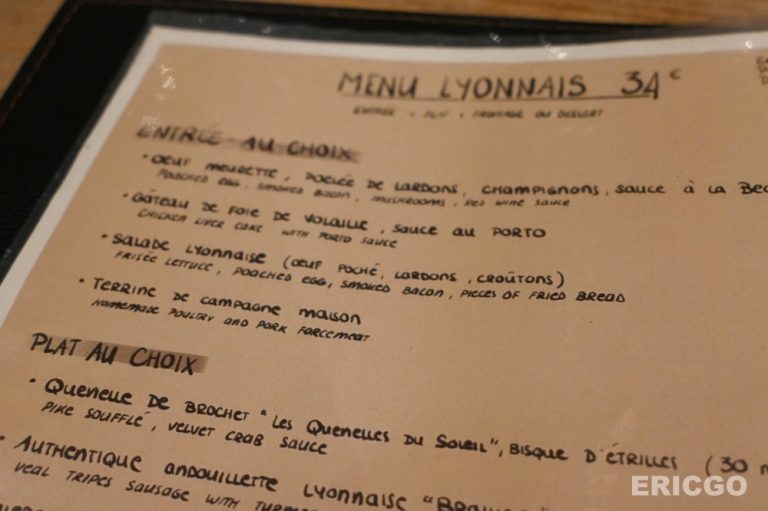 MENU LYONNAIS 34€
ENTRÉE + PLAT + FROMAGE OU DESSERT
ENTRÉE AU CHOIX
• OEUF MEURETTE, POÊLÉE DE LARDONS, CHAMPIGNONS, SAUCE À LA
POACHED EGG, SMOKED BACON, MUSHROOMS, RED WINE SAUCE
• GÂTEAU DE FOIE DE VOLAILLE, SAUCE AU PORTO
CHICKEN LIVER CAKE WITH PORTO SAUCE
• SALADE LYONNAISE (OEUF POCHÉ, LARDONS, CROÛTONS)
FRISÉE LETTUCE, POACHED EGG, SMOKED BACON, PIECES OF FRIED BREAD
• TERRINE DE CAMPAGNE MAISON
HOMEMADE POULTRY AND PORK FORCEMEAT
PLAT AU CHOIX
• QUENELLE DE BROCHET "LES QUENELLES DU SOLEIL", BISQUE D'ÉTRILLES (30
PIKE SOUFFLÉ, VELVET CRAB SAUCE
• AUTHENTIQUE ANDOUILLETTE LYONNAISE
VEAL TRIPES SAUSAGE WITH
ERICGO